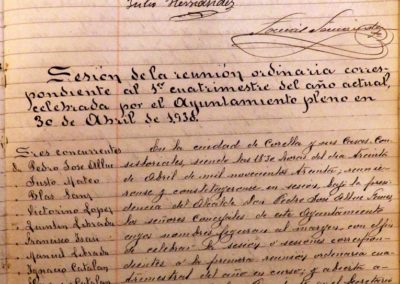 Julio Hernández
Sesión de la reunión ordinaria corres-
pondiente al 1er cuatrimestre del año actual,
celebrada por el Ayuntamiento pleno en
30 de Abril de 1930.
Sres concurrentes
D. Pedro José Allue
Justo Mateo
Blas Sanz
Victorino Lopez
Quintin Estrada
Francisco
Manuel Estrada
Ignacio Catalan
Catalan
En la ciudad de Corella y sus Casas Con-
sistoriales siendo las 18'30 horas del dia treinta
de Abril de mil novecientos treinta, reunie-
ronse y constituyeronse en sesion, bajo la presi-
dencia del Alcalde Don Pedro José Allue
los señores Concejales de este Ayuntamiento
cuyos nombres figuran al margen, con el fin
de celebrar la sesion o sesiones correspon-
dientes a la primera reunion ordinaria cua-
trimestral del año en curso; y abierta a-
el Secretario